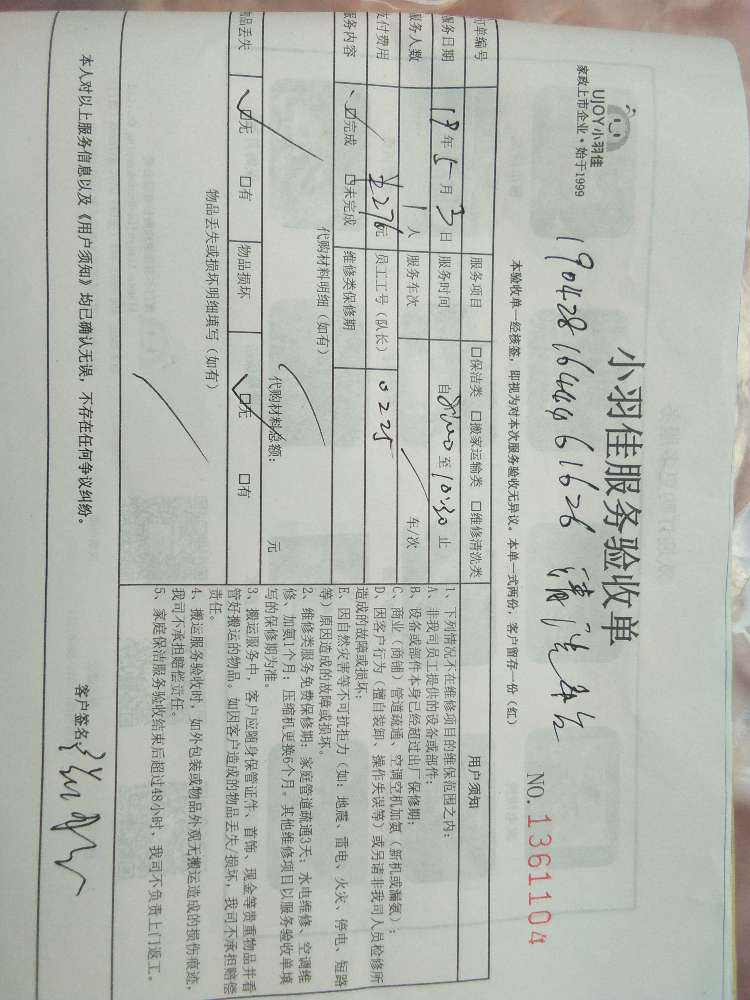 UJOY小羽佳
家政上市企业·始于1999
小羽佳服务验收单
19042816444961626 清洗
NO. 1361104
本验收单一经核签，即视为对本次服务验收无异议。本单一式两份，客户留存一份（红）
订单编号 服务项目 口保洁类 口搬家运输类 口维修清洗类
服务日期 19年5月3日 服务时间 自 至10:30止
服务人数 1人 服务车次 车/次
支付费用 ¥276元 员工工号（队长） 0225
服务内容 口完成 口未完成 维修类保修期
代购材料明细（如有）
代购材料总额： 元
物品丢失 口无 口有 物品损坏 口无 口有
物品丢失或损坏明细填写（如有）
用户须知
1、下列情况不在维修项目的维保范围之内：
A、非我司员工提供的设备或部件；
B、设备或部件本身已经超过出厂保修期；
C、商业（商铺）管道疏通、空调空机加氨（新机或漏氨）；
D、因客户行为（擅自装卸、操作失误等）或另请非我司人员检修所
造成的故障或损坏；
E、因自然灾害等不可抗拒力（如：地震、雷电、火灾、停电、短路
等）原因造成的故障或损坏。
2、维修类服务免费保修期：家庭管道疏通3天；水电维修、空调维
修、加氨1个月；压缩机更换6个月。其他维修项目以服务验收单填
写的保修期为准。
3、搬运服务中，客户应随身保管证件、首饰、现金等贵重物品并看
管好搬运的物品。如因客户造成的物品丢失/损坏，我司不承担赔偿
责任。
4、搬运服务验收时，如外包装或物品外观无搬运造成的损伤痕迹，
我司不承担赔偿责任。
5、家庭保洁服务验收结束后超过48小时，我司不负责上门返工。
本人对以上服务信息以及《用户须知》均已确认无误，不存在任何争议纠纷。
客户签名：